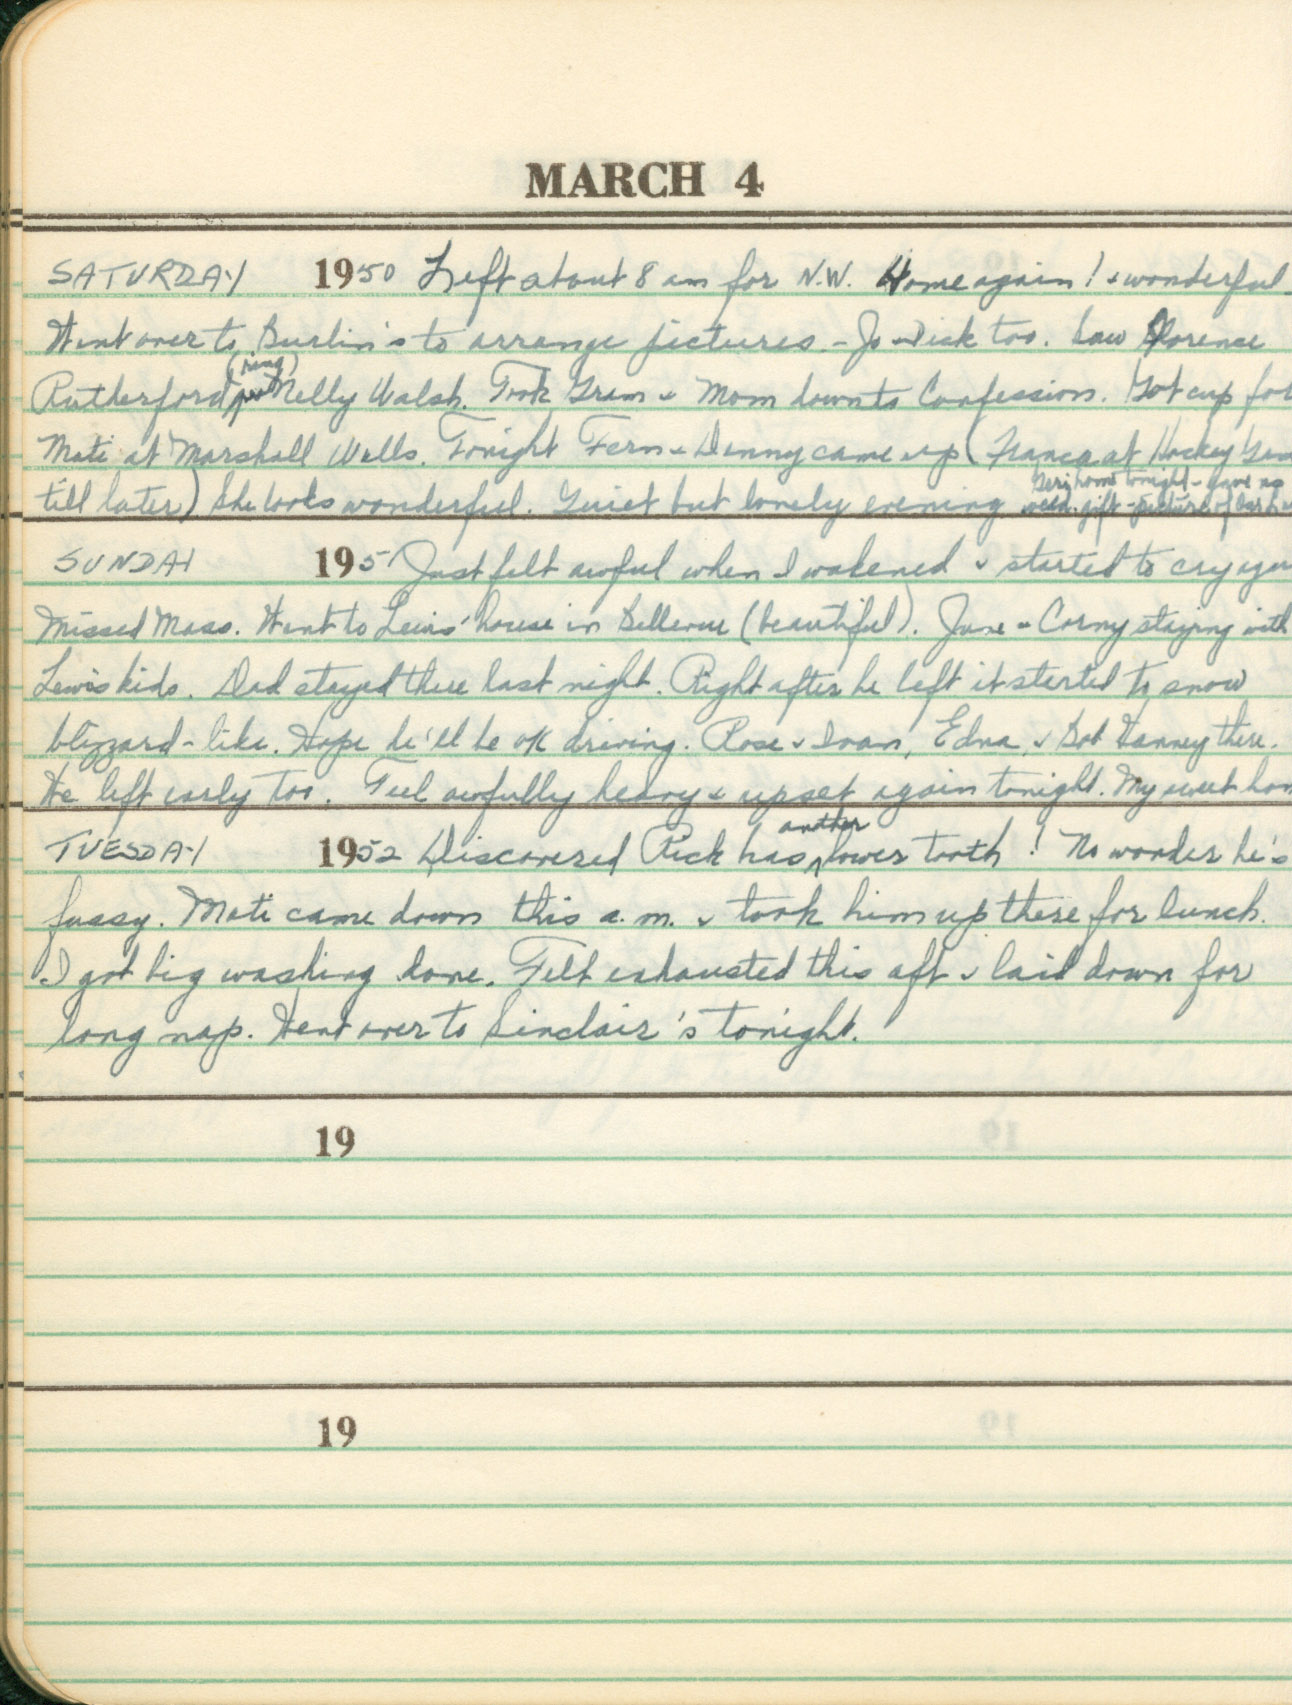 MARCH 4
SATURDAY 1950 Left about 8 am for N.W. Home again! & wonderful
Went over to Burlin's to arrange pictures. - Jo & Dick too. Saw Florence
(ring)
Rutherford Nelly Walsh. Took Gram & Mom down to Confession. Got cup for
Mati at Marshall Wells. Tonight Fern & Denny came up ( at Hockey
till later) She looks wonderful. Quiet but lonely evening
Geri home tonight - gave us
wedd. gift - picture of
SUNDAY 195 Just felt awful when I wakened & started to cry
Missed Mass. Went to Lewis' house in Bellevue (beautiful). June & Corny staying with
Lewis kids. Dad stayed there last night. Right after he left it started to snow
blizzard-like. Hope he'll be OK driving. Rose & Ivan, Edna, & Bob there.
He left early too. Feel awfully heavy & upset again tonight. My sweet
another
TUESDAY 1952 Discovered Rick has ^ lower tooth! No wonder he's
fussy. Mati came down this a.m. & took him up there for lunch.
I got big washing done. Felt exhausted this aft & laid down for
long nap. Went over to Sinclair's tonight.
19
19